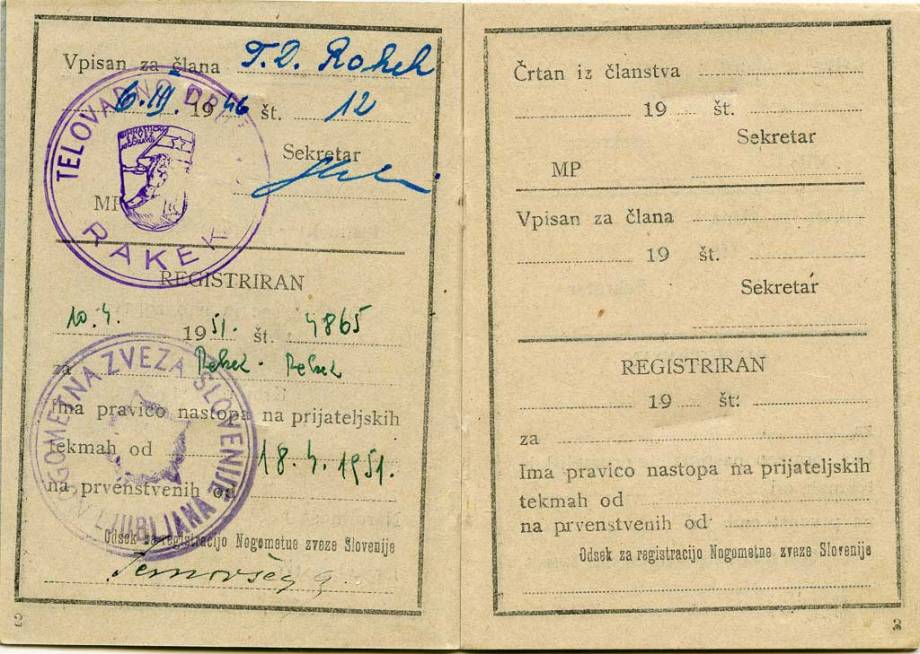 Vpisan za člana T.D. Rakek
6. III. 1946 št. 12
TELOVADNO DR
RAKEK
Sekretar
MP
REGISTRIRAN
10.4. 1951. št. 4865
za Rakek - Rakek
NOGOMETNA ZVEZA SLOVENIJE
LJUBLJANA
Ima pravico nastopa na prijateljskih
tekmah od
18.4.1951.
na prvenstvenih od
Odsek za registracijo Nogometne zveze Slovenije
2
Črtan iz članstva
19 št.
Sekretar
MP
Vpisan za člana
19 št.
Sekretar
REGISTRIRAN
19 št.
za
Ima pravico nastopa na prijateljskih
tekmah od
na prvenstvenih od
Odsek za registracijo Nogometne zveze Slovenije
3